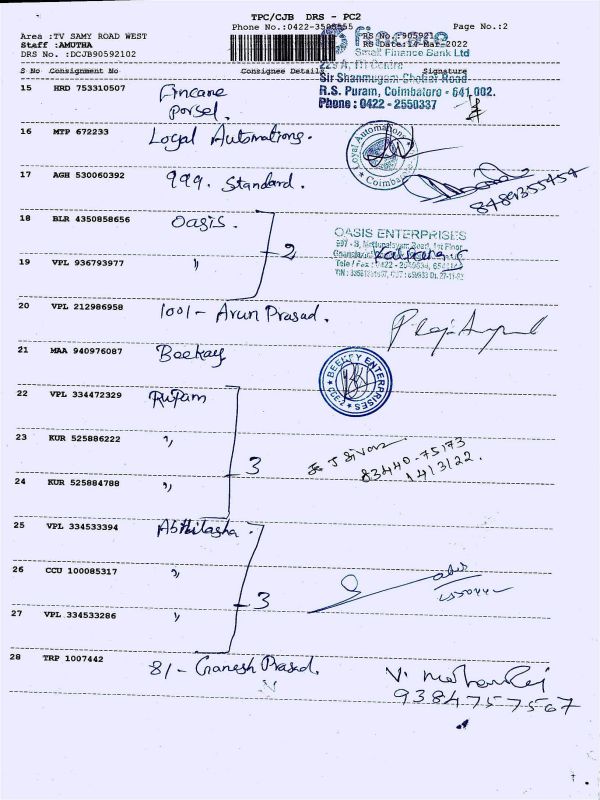 TPC/CJB DRS - PC2
Phone No.:0422-3585555 Page No.:2
Area :TV SAMY ROAD WEST RS No.:905921
Staff :AMUTHA RS Date:14-Mar-2022
DRS No. :DCJB90592102
fincare
Small Finance Bank Ltd
S No Consignment No Consignee Details Signature
Sir Shanmugam Chettiar Road
R.S. Puram, Coimbatore - 641 002.
Phone : 0422 - 2550337
15 HRD 753310507 Fincare
Porsel.
16 MTP 672233 Loyal Automations.
Loyal Automations
Coimbatore
17 AGH 530060392 999. Standard.
8489355454
18 BLR 4350858656 Oasis. 2
OASIS ENTERPRISES
19 VPL 936793977 "
20 VPL 212986958 1001- Arun Prasad.
21 MAA 940976087 Beekay
BEEKEY ENTERPRISES
22 VPL 334472329 Rupam
23 KUR 525886222 " 3
83440-75173
14/3/22.
24 KUR 525884788 "
25 VPL 334533394 Abhilasha.
26 CCU 100085317 " 3
27 VPL 334533286 "
28 TRP 1007442 81- Ganesh Prasad.
9384757567